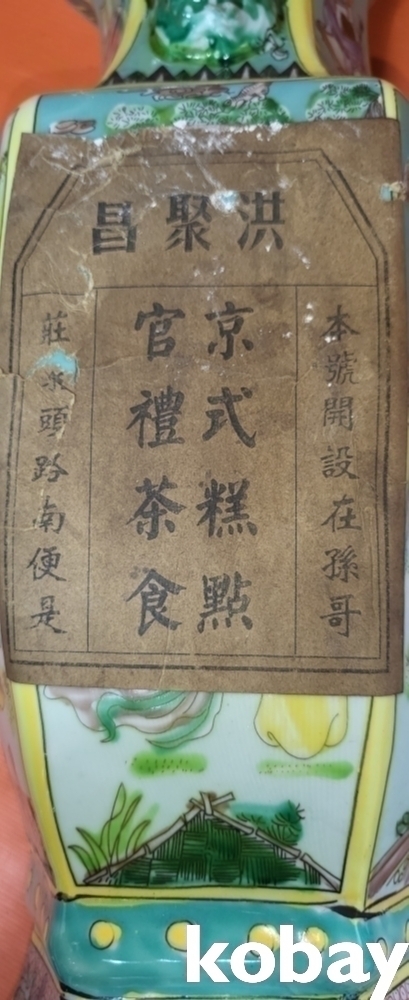 洪聚昌
本號開設在孫哥
京式糕點
官禮茶食
莊頭路南便是
kobay